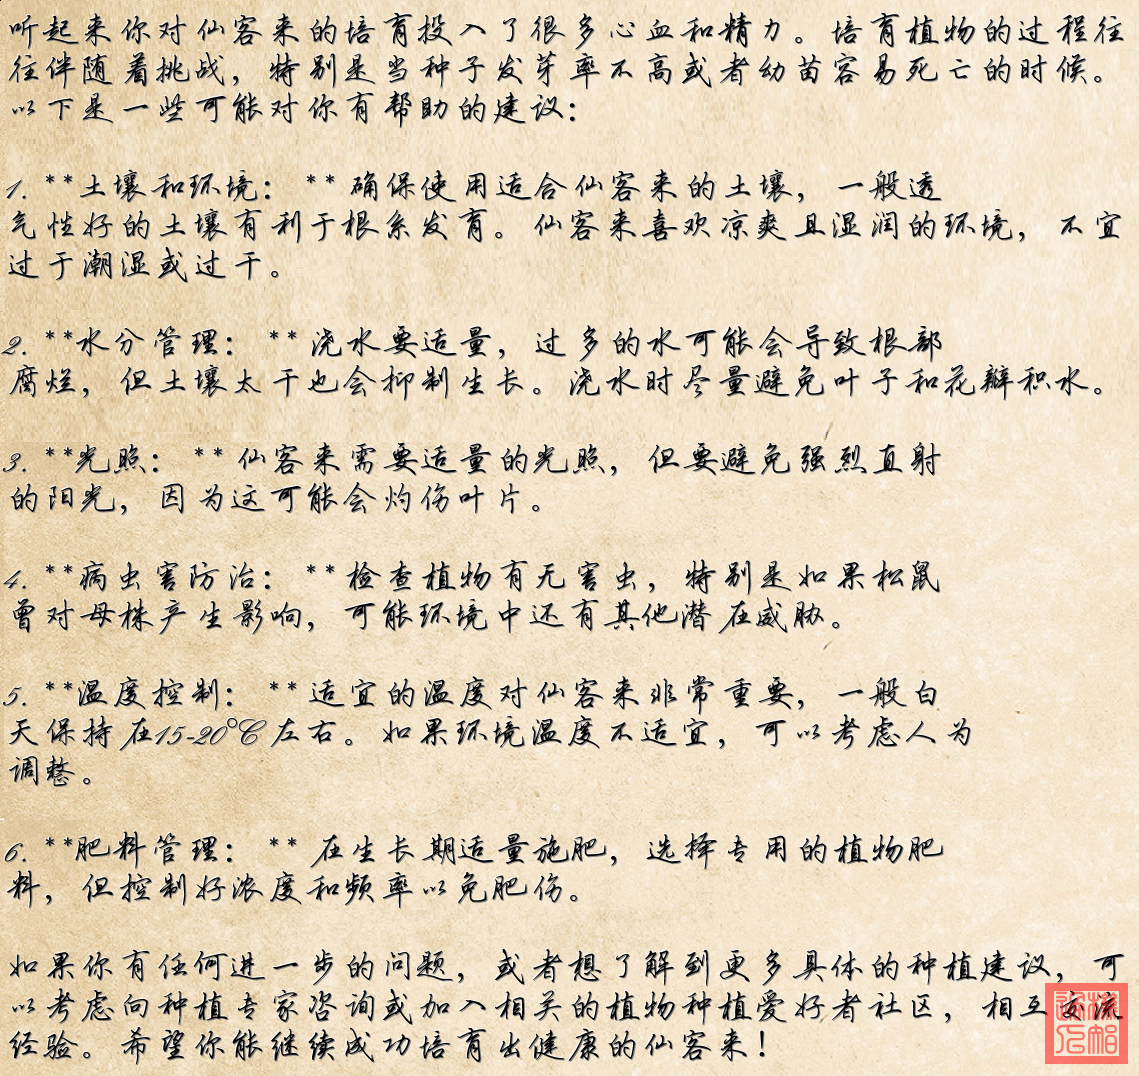 听起来你对仙客来的培育投入了很多心血和精力。培育植物的过程往
往伴随着挑战，特别是当种子发芽率不高或者幼苗容易死亡的时候。
以下是一些可能对你有帮助的建议：
1. **土壤和环境： ** 确保使用适合仙客来的土壤，一般透
气性好的土壤有利于根系发育。仙客来喜欢凉爽且湿润的环境，不宜
过于潮湿或过干。
2. **水分管理： ** 浇水要适量，过多的水可能会导致根部
腐烂，但土壤太干也会抑制生长。浇水时尽量避免叶子和花瓣积水。
3. **光照： ** 仙客来需要适量的光照，但要避免强烈直射
的阳光，因为这可能会灼伤叶片。
4. **病虫害防治： ** 检查植物有无害虫，特别是如果松鼠
曾对母株产生影响，可能环境中还有其他潜在威胁。
5. **温度控制： ** 适宜的温度对仙客来非常重要，一般白
天保持在15-20°C左右。如果环境温度不适宜，可以考虑人为
调整。
6. **肥料管理： ** 在生长期适量施肥，选择专用的植物肥
料，但控制好浓度和频率以免肥伤。
如果你有任何进一步的问题，或者想了解到更多具体的种植建议，可
以考虑向种植专家咨询或加入相关的植物种植爱好者社区，相互交流
经验。希望你能继续成功培育出健康的仙客来！